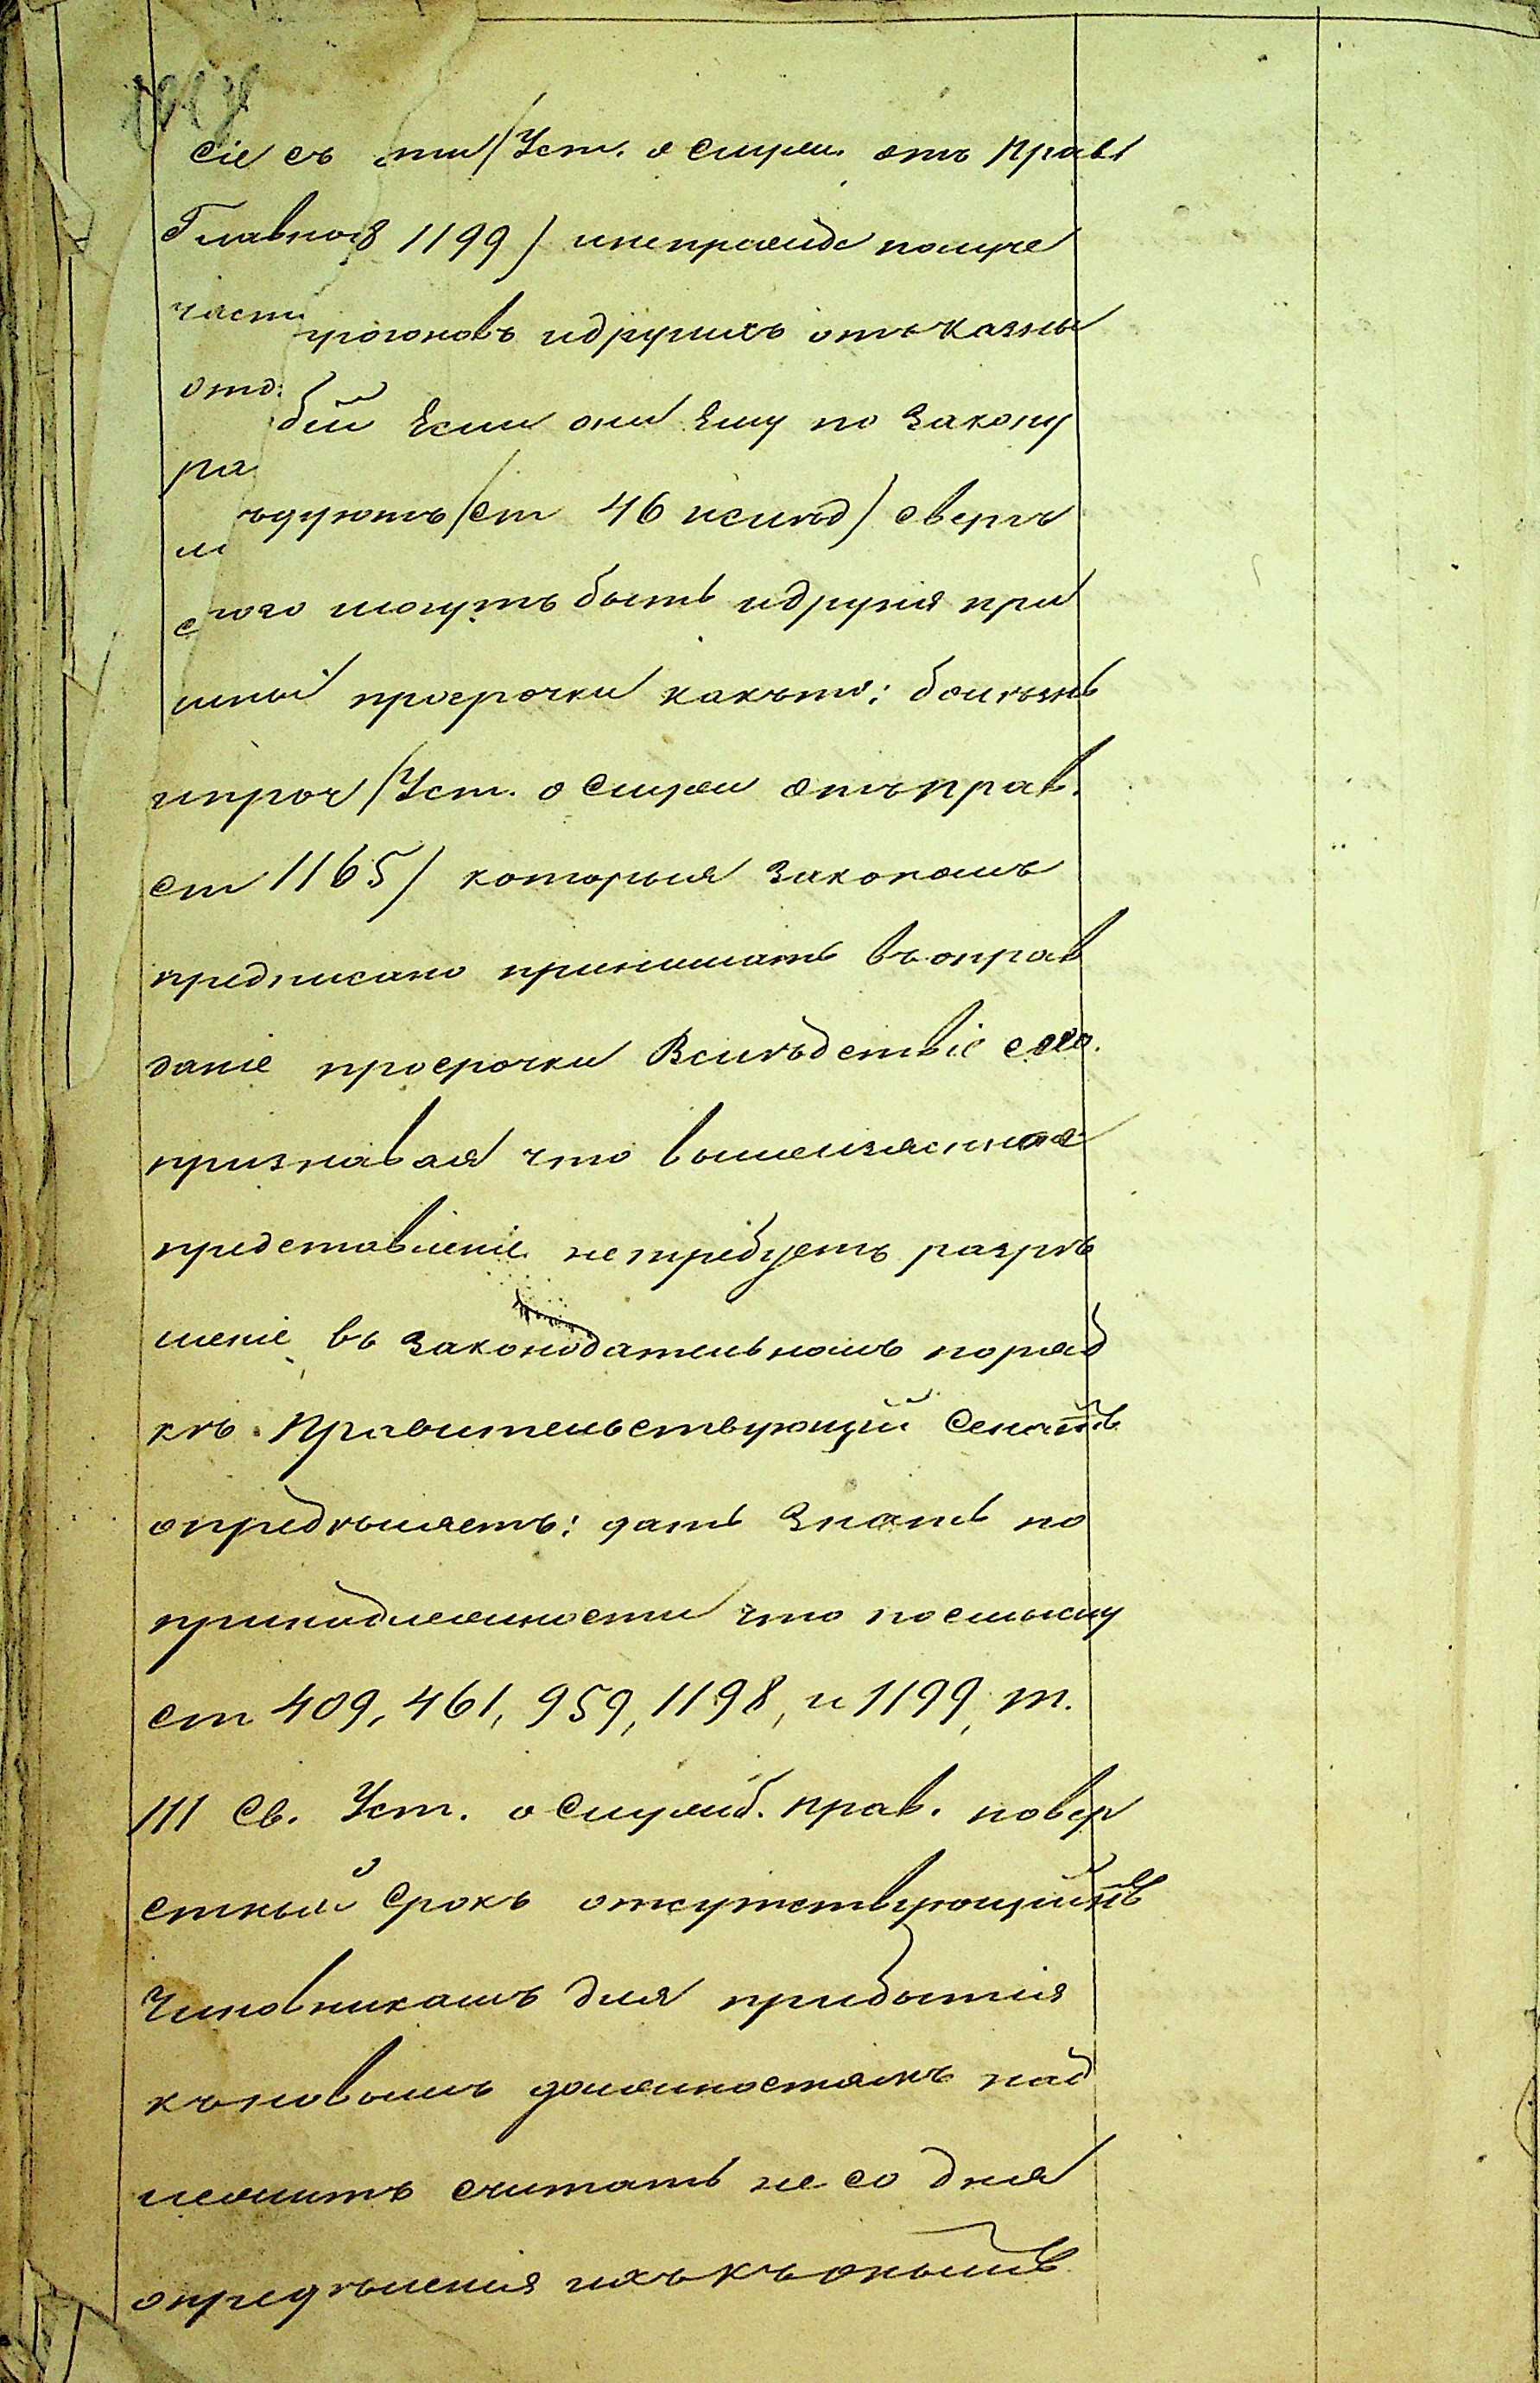 сіе съ сти (Уст. о служ. отъ Прав
Главно 8 1199) инепрежде получе
части
прогоновъ идругихъ отъ казны
отд.
бій Если они Ему по Закону
ра
ѣдуютъ (ст 46 ислѣд) сверхъ
того могутъ быть идругія при
чины просрочки какъто: болѣзнь
ипроч (Уст. о служ отъ прав.
ст 1165) которыя Закономъ
предписано принимать въ оправ
даніе просрочки Вслѣдствіе сего.
признавая что вышеизясненое
представленіе нетребуетъ разрѣ
шеніе въ Законодательномъ поряд
кѣ. Правительствующій Сенатъ
опредѣляетъ: дать Знать по
принадлежности что посмыслу
ст 409, 461, 959, 1198, и 1199, т.
III Св. Уст. о Служб. прав. повер
стный срокъ отсутствующимъ
Чиновникамъ для прибытія
кѣновымъ должностямъ над
лежитъ считать не со дня
опредѣленія ихъ къ онымъ